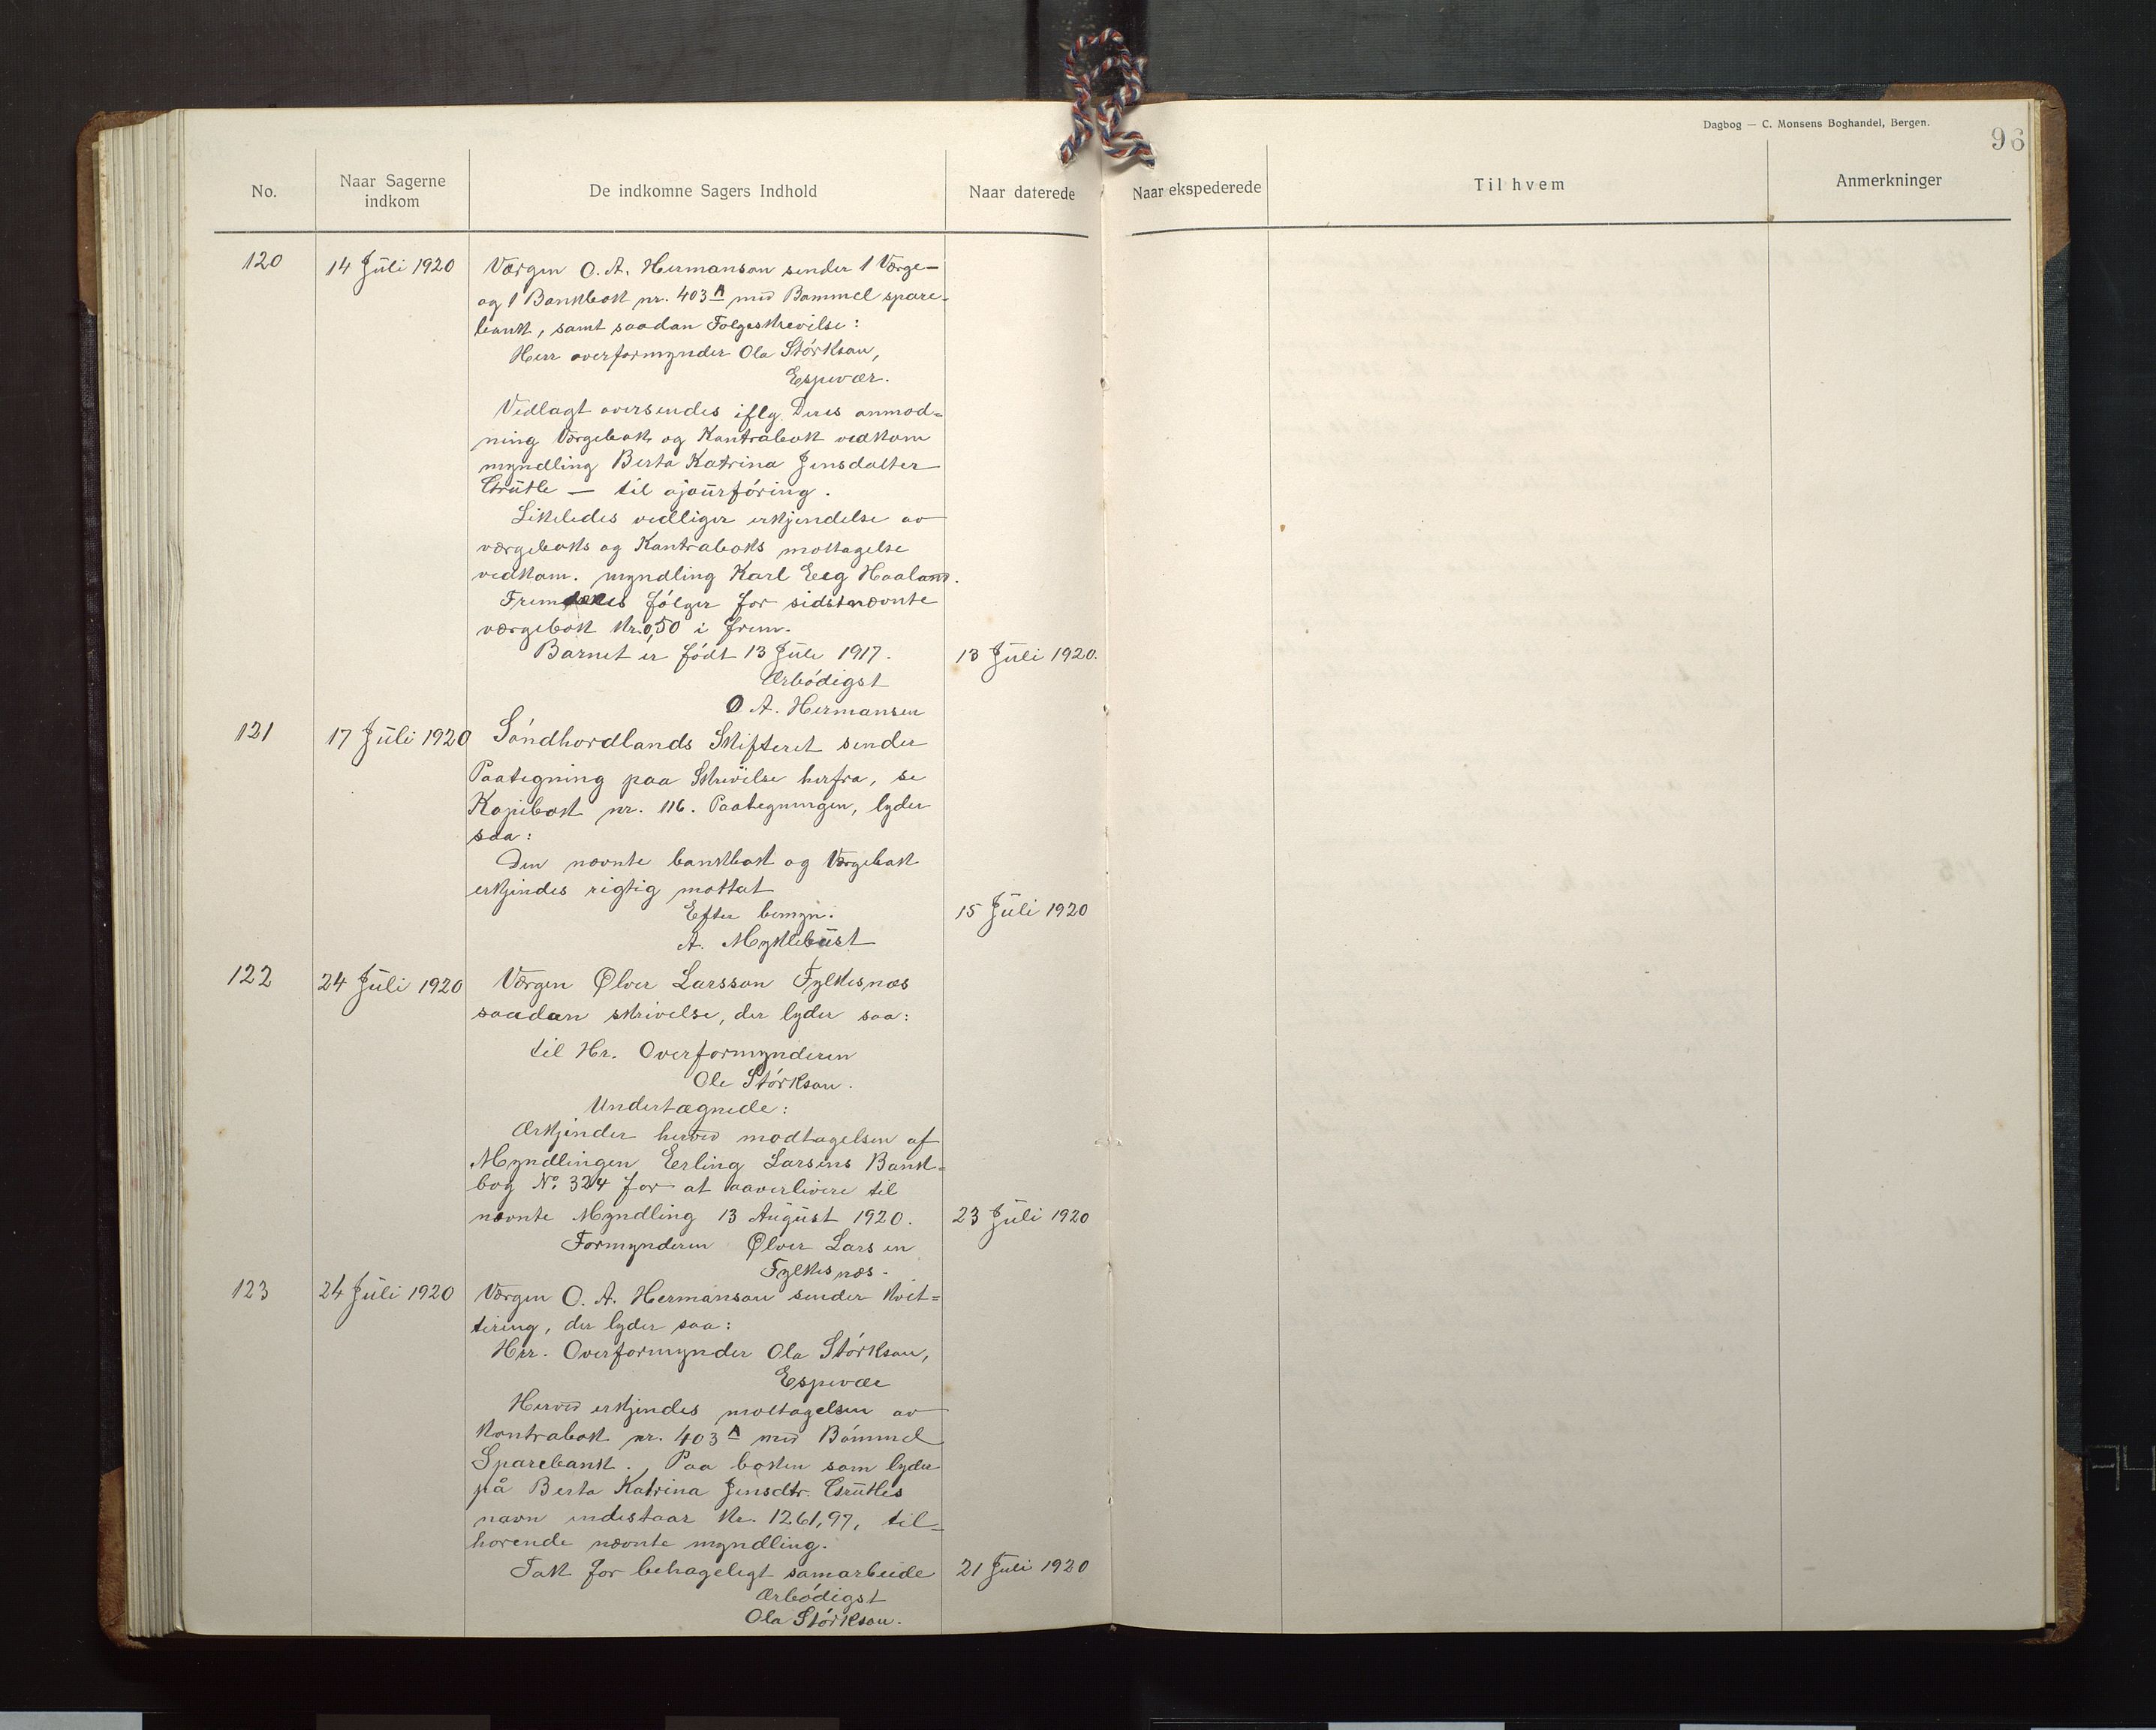 Dagbog — C. Monsens Boghandel, Bergen.
96
No.
Naar Sagerne indkom
De indkomne Sagers Indhold
Naar daterede
Naar ekspederede
Til hvem
Anmerkninger
120 14 Juli 1920 Værgen O. A. Hermanson sender 1 Værge-
og 1 Bankbok nr. 403 A med Bømmel spare-
bank, samt saadan Følgeskrevilse:
Herr overformynder Ola Størkson,
Espevær.
Vedlagt oversendes iflg. Deres anmod=
ning Værgebok og Kontrabok vedkom
myndling Berta Katrina Jensdatter
Grutle — til ajourføring.
Likeledes vedligger erkjendelse av
værgeboks og Kontraboks mottagelse
vedkom. myndling Karl Eeg Haaland.
Fremdeles følger for sidstnævnte
værgebok kr. 0,50 i frim.
Barnet er født 13 Juli 1917. 13 Juli 1920.
Ærbødigst
O A. Hermansen
121 17 Juli 1920 Söndhordlands Skifteret sender
Paategning paa Skrivilse herfra, se
Kopibok nr. 116. Paategningen, lyder
saa:
Den nævnte bankbok og Værgebok
erkjendes rigtig mottat
Efter bemyn. 15 Juli 1920
A. Myklebust
122 24 Juli 1920 Værgen Ølver Larsson Fylkesnæs
saadan skrivelse, der lyder saa:
til Hr. Overformynderen
Ole Størkson.
Undertægnede:
Ærkjender herved modtagelsen af
Myndlingen Eerling Larsens Bank=
bog No. 324 for at aaverlivere til
nævnte Myndling 13 August 1920. 23 Juli 1920
Formynderen Ølver Larsen
Fylkesnæs.
123 24 Juli 1920 Værgen O. A. Hermanson sender kvit=
tering, der lyder saa:
Hrr. Overformynder Ola Størkson,
Espevær
Herved erkjendes mottagelsen av
Kontrabok nr. 403 A med Bømmel
Sparebank. Paa boken som lyder
på Berta Katrina Jensdtr. Grutles
navn indestaar kr. 1261,97, til-
hørende nævnte myndling.
Tak for behageligt samarbeide 21 Juli 1920
Ærbødigst
Ola Størkson.